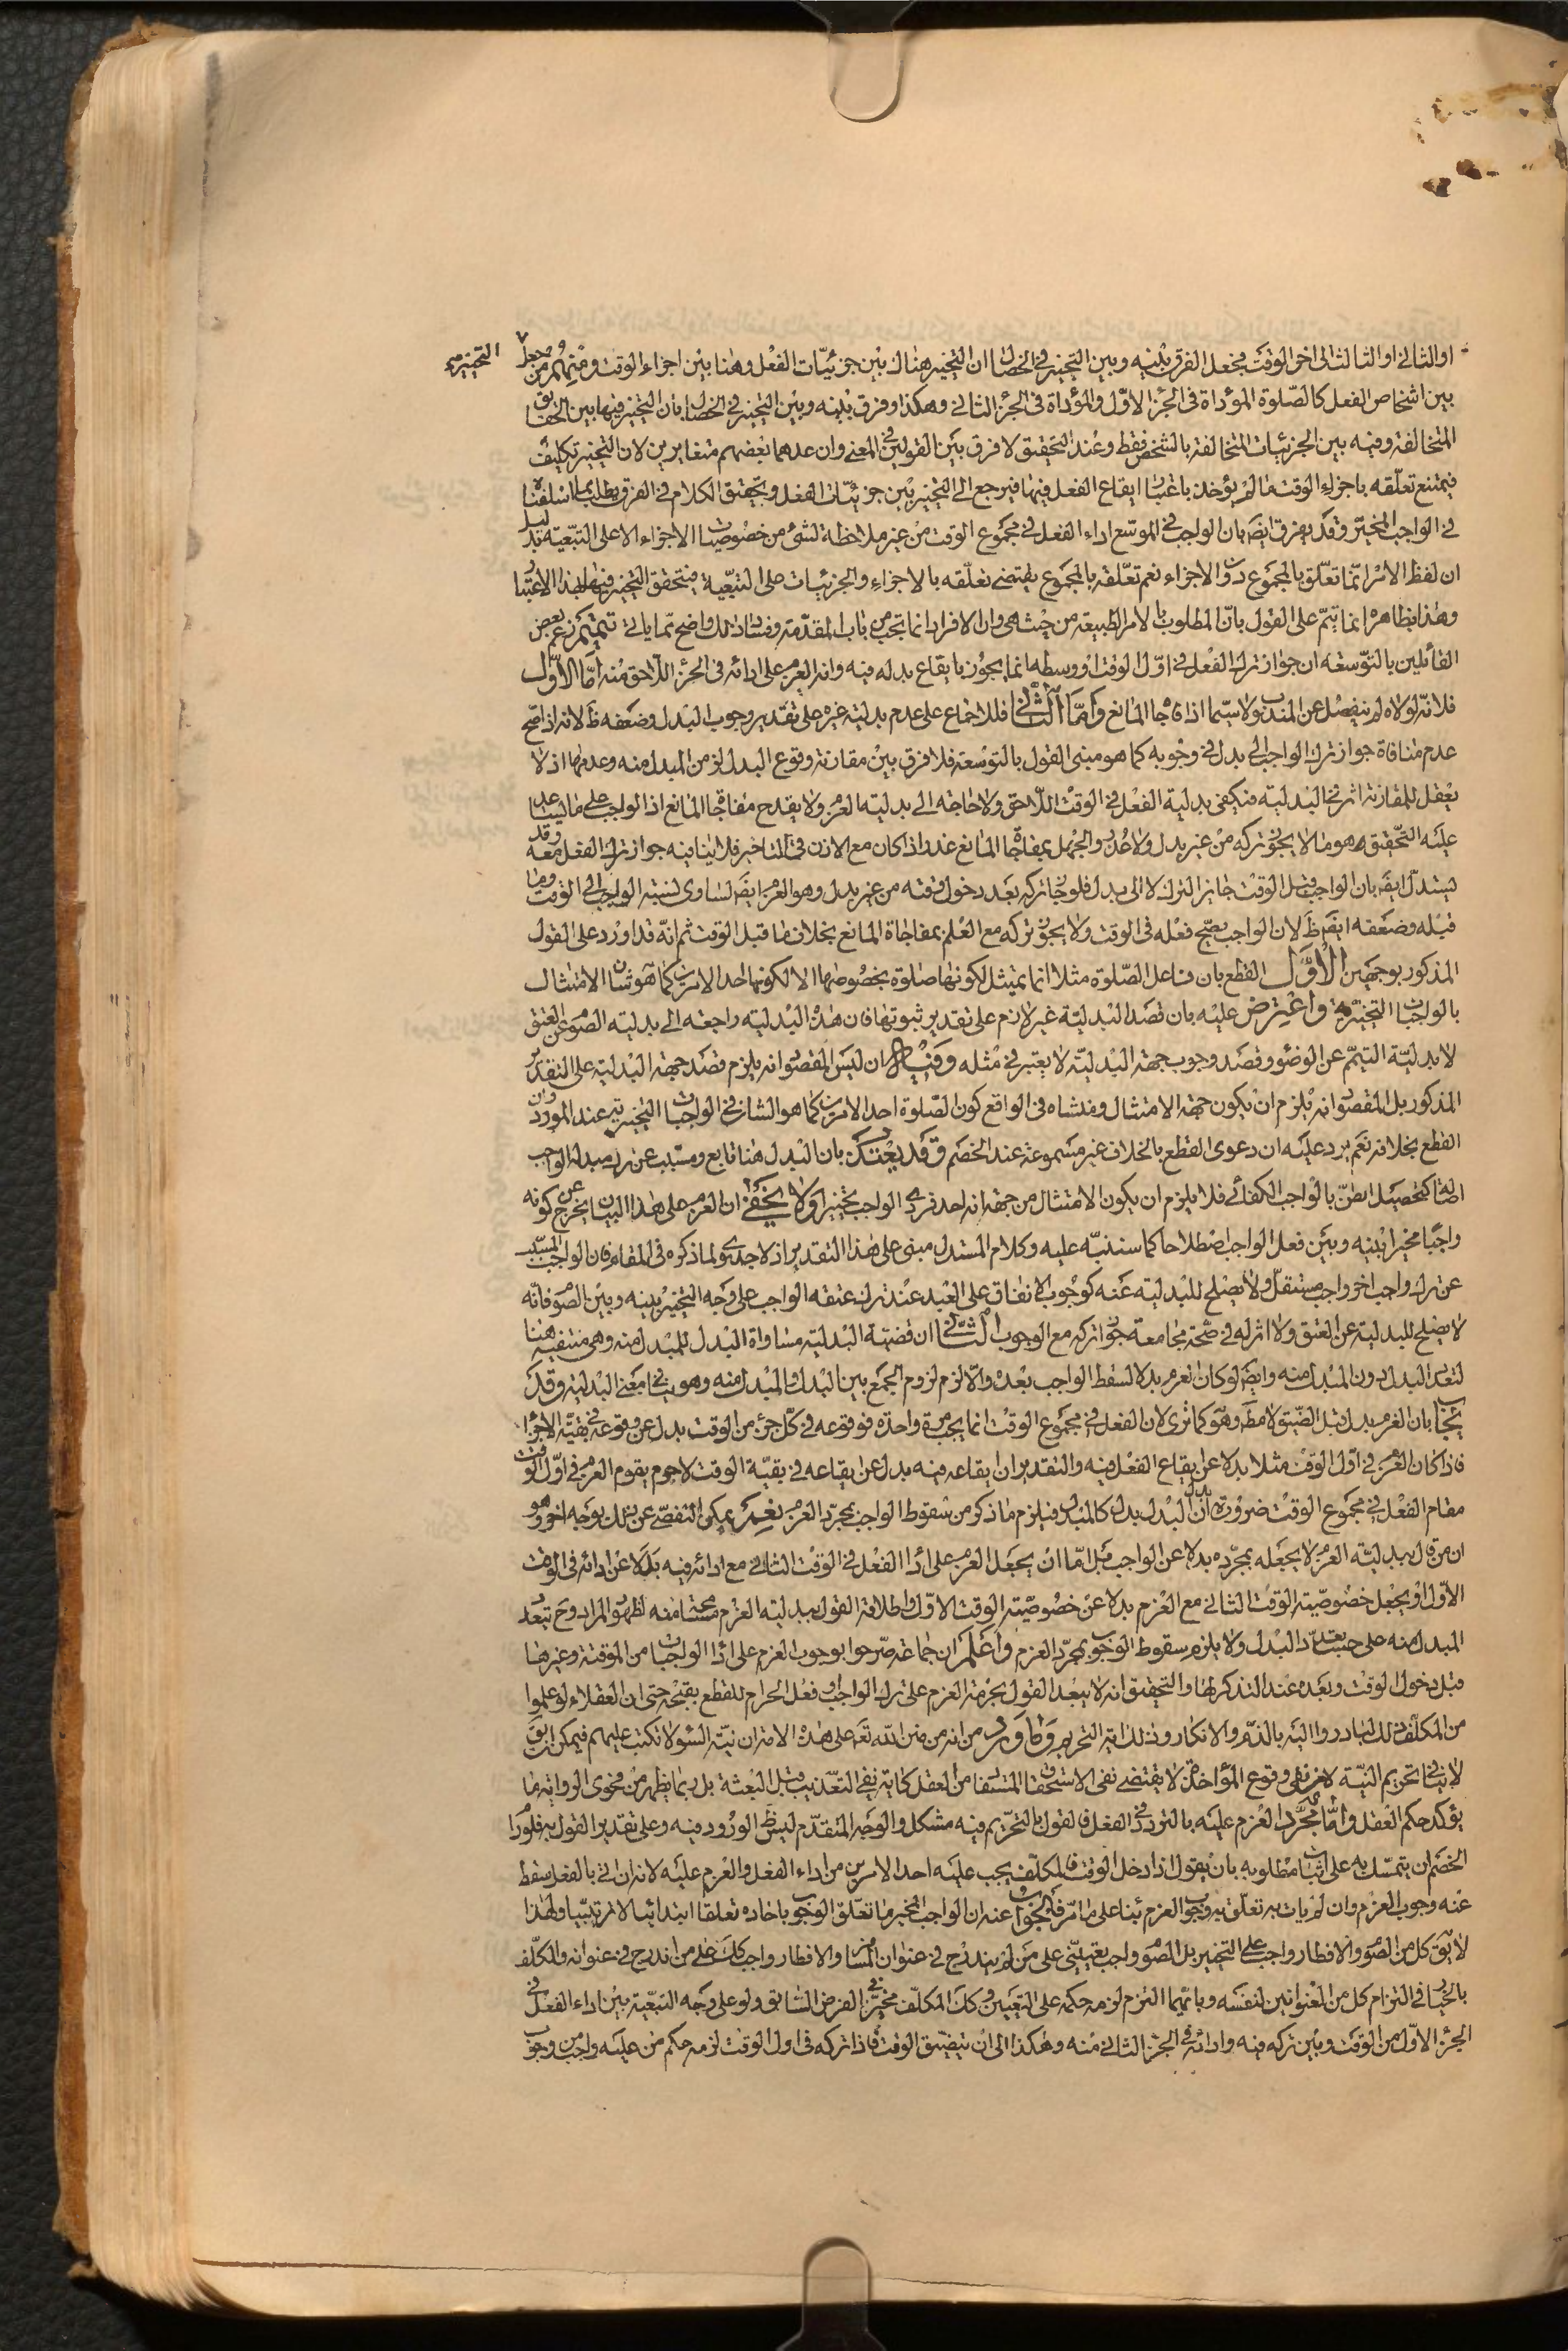 او الثاني او الثالث الى اخر الوقت فجعل الفرق بينه وبين التخيير في الخصال ان التخيير هناك بين جزئيات الفعل وهنا بين اجزاء الوقت ومنهم من جعل التخيير
بين اشخاص الفعل كالصلوة المؤداة في الجزء الاول والمؤداة في الجزء الثاني وهكذا وفرق بينه وبين التخيير في الخصال بان التخيير فيها بين الحقايق
المتخالفة وفيه بين الجزئيات المتخالفة بالشخص فقط وعند التحقيق لا فرق بين القولين في المعنى وان عدهما بعضهم متغايرين لان التخيير تكليف
فيمتنع تعلقه باجزاء الوقت ما لم يؤخذ باعتبار ايقاع الفعل فيها فيرجع الى التخيير بين جزئيات الفعل وتحقيق الكلام في الفرق يطلب مما اسلفناه
في الواجب المخير وقد يفرق ايضا بان الواجب في الموسع اداء الفعل في مجموع الوقت من غير ملاحظة لشئ من خصوصيات الاجزاء الا على التبعية بدليل
ان لفظ الامر انما تعلق بالمجموع دون الاجزاء نعم تعلقه بالمجموع يقتضي تعلقه بالاجزاء والجزئيات على التبعية فيتحقق التخيير فيها بهذا الاعتبار
وهذا بظاهره انما يتم على القول بان المطلوب بالامر الطبيعة من حيث هي وان الافراد انما تجب من باب المقدمة وفساد ذلك واضح مما ياتي تتميم زعم بعض
القائلين بالتوسعة ان جواز ترك الفعل في اول الوقت او وسطه انما يجوز بايقاع بدله فيه وانه العزم على ادائه في الجزء اللاحق منه اما الاول
فلانه لولاه لم ينفصل عن المندوب ولا سيما اذا فاجا المانع واما الثاني فللاجماع على عدم بدلية غيره على تقدير وجوب البدل وضعفه ظ لانه اذا صح
عدم منافاة جواز ترك الواجب الى بدل في وجوبه كما هو مبنى القول بالتوسعة فلا فرق بين مقارنة وقوع البدل لزمن المبدل منه وعدمها اذ لا
يعقل للمقارنة اثر في البدلية فيكفي بدلية الفعل في الوقت اللاحق ولا حاجة الى بدلية العزم ولا يقدح مفاجاة المانع اذ الواجب على ما يساعد
عليه التحقيق هو ما لا يجوز تركه من غير بدل ولا عذر والجهل بمفاجاة المانع عذر اذا كان مع الاذن في التاخير فلا ينافيه جواز ترك الفعل معه وقد
يستدل ايضا بان الواجب قبل الوقت جائز الترك لا الى بدل فلو جاز تركه بعد دخول وقته من غير بدل وهو العزم ايضا لساوى نسبة الواجب الى الوقت وما
قبله وضعفه ايضا ظ لان الواجب يصح فعله في الوقت ولا يجوز تركه مع العلم بمفاجاة المانع بخلاف ما قبل الوقت ثم انه قد اورد على القول
المذكور بوجهين الاول القطع بان فاعل الصلوة مثلا انما يمتثل لكونها صلوة بخصوصها لا لكونها احد الامرين كما هو شان الامتثال
بالواجبات التخييرية واعترض عليه بان قصد البدلية غير لازم على تقدير ثبوتها فان هذه البدلية راجعة الى بدلية الصوم عن العتق
لا بدلية التيمم عن الوضوء وقصد وجوب جهة البدلية لا يعتبر في مثله وفيه ان ليس المقصود انه يلزم قصد جهة البدلية على التقدير
المذكور بل المقصود انه يلزم ان يكون جهة الامتثال ومنشاه في الواقع كون الصلوة احد الامرين كما هو الشان في الواجبات التخييرية عند المورد وان
القطع بخلافه نعم يرد عليه ان دعوى القطع بالخلاف غير مسموعة عند الخصم وقد يعتذر بان البدل هنا تابع ومسبب عن ترك مبدله الواجب
كتحصيل الظن بالواجب الكفائي فلا يلزم ان يكون الامتثال من جهة انه احد فردي الواجب تخييرا ولا يخفى ان العزم على هذا البيان يخرج عن كونه
واجبا مخيرا بينه وبين فعل الواجب اصطلاحا كما سننبه عليه وكلام المستدل مبني على هذا التقدير اذ لا جدوى لما ذكره في المقام فان الواجب المسبب
عن ترك واجب اخر واجب مستقل ولا يصلح للبدلية عنه كوجوب الانفاق على العبد عند ترك عتقه الواجب على وجه التخيير بينه وبين الصوم فانه
لا يصلح للبدلية عن العتق ولا اثر له في صحة مجامعة جواز تركه مع الوجوب الثاني ان قضية البدلية مساواة البدل للمبدل منه وهي منتفية هنا
لتعدد البدل دون المبدل منه وايضا لو كان العزم بدلا لسقط الواجب بعده والا لزم لزوم الجمع بين البدل والمبدل منه وهو ينافي معنى البدلية وقد
يجاب بان العزم بدل قبل الضيق لا مط وهو كما ترى لان الفعل في مجموع الوقت انما يجب مرة واحدة فوقوعه في كل جزء من الوقت بدل عن وقوعه في بقية الاجزاء
فاذا كان العزم في اول الوقت مثلا بدلا عن ايقاع الفعل فيه والتقدير ان ايقاعه فيه بدل عن ايقاعه في بقية الوقت لا جرم يقوم العزم في اول الوقت
مقام الفعل في مجموع الوقت ضرورة ان بدل البدل بدل كالمبدل فيلزم ما ذكر من سقوط الواجب بمجرد العزم نعم يمكن التفصي عن ذلك بوجه اخر وهو
ان من قال ببدلية العزم لا يجعله بمجرده بدلا عن الواجب بل اما ان يجعل العزم على اداء الفعل في الوقت الثاني مع ادائه فيه بدلا عن ادائه في الوقت
الاول او يجعل خصوصية الوقت الثاني مع العزم بدلا عن خصوصية الوقت الاول واطلاقه القول ببدلية العزم مسامحة منه لظهور المراد وح يتعدد
المبدل منه على حسب تعدد البدل ولا يلزم سقوط الوجوب بمجرد العزم واعلم ان جماعة صرحوا بوجوب العزم على اداء الواجبات من الموقتة وغيرها
قبل دخول الوقت وبعده عند التذكر لها والتحقيق انه لا يبعد القول بحرمة العزم على ترك الواجب او فعل الحرام للقطع بقبحه حتى ان العقلاء لو علموا
من المكلف ذلك لبادروا اليه بالذم والانكار وذلك اية التحريم وما ورد من انه من من الله تعالى على هذه الامة ان نية السوء لا تكتب عليهم فيمكن ان يق
لا ينافي تحريم النية لان نفي وقوع المؤاخذة لا يقتضي نفي الاستحقاق المستفاد من العقل كاية نفي التعذيب قبل البعثة بل ربما يظهر من فحوى الرواية ما
يؤكد حكم العقل واما مجرد العزم عليه بالتردد في الفعل فالقول بالتحريم فيه مشكل والوجه المتقدم ليس ظ الورود فيه وعلى تقدير القول به فلو رام
الخصم ان يتمسك به على اثبات مطلوبه بان يقول اذا دخل الوقت فالمكلف يجب عليه احد الامرين من اداء الفعل والعزم عليه لانه ان اتى بالفعل سقط
عنه وجوب العزم وان لم يات به تعلق به وجوب العزم بناء على ما مر فالجواب عنه ان الواجب المخير ما تعلق الوجوب باحاده تعلقا ابتدائيا لا مرتبيا ولهذا
لا يق كل من الصوم والافطار واجب على التخيير بل الصوم واجب تعييني على من لم يندرج في عنوان المسافر والافطار واجب كك على من اندرج في عنوانه والمكلف
بالخيار في التزام كل من العنوانين لنفسه وبايهما التزم لزمه حكمه على التعيين وكك المكلف مخير في الفرض السابق ولو على وجه التبعية بين اداء الفعل في
الجزء الاول من الوقت وبين تركه فيه وادائه في الجزء الثاني منه وهكذا الى ان يتضيق الوقت فاذا تركه في اول الوقت لزمه حكم من عليه واجب من وجوب